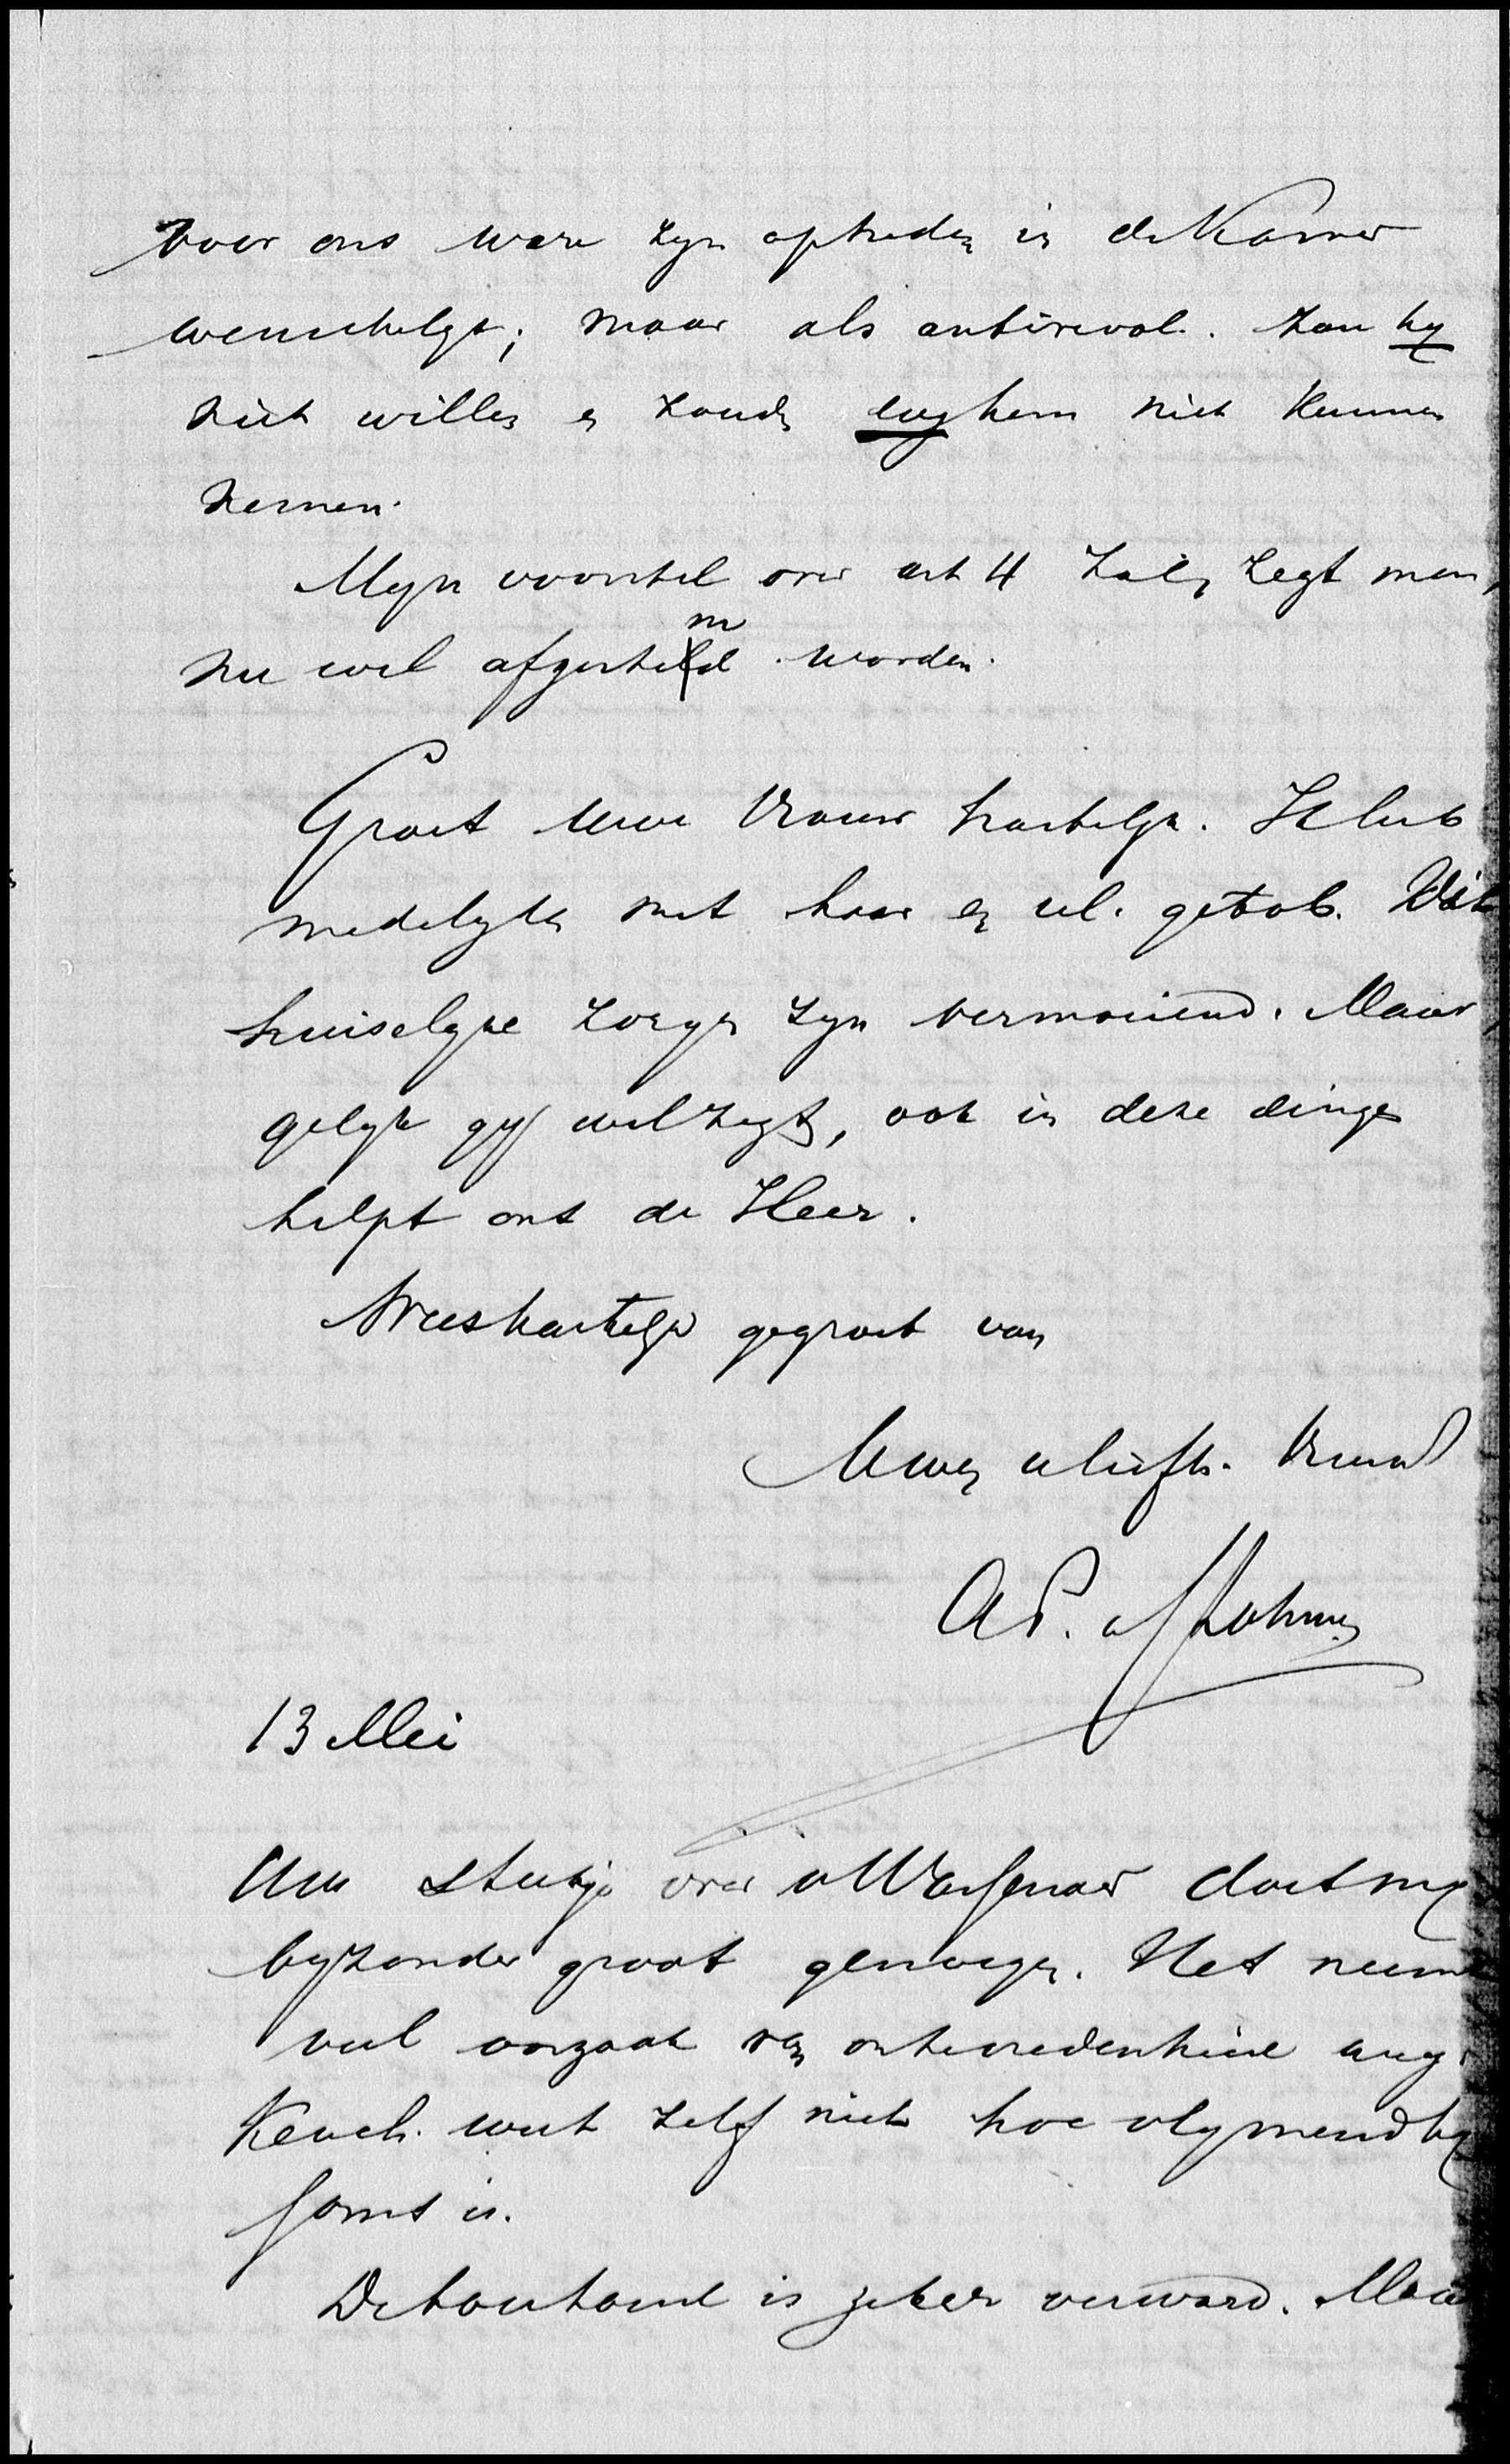 voor ons ware zyn optreden in de Kamer
wenschelyk; maar als antirevol. zou hy
niet willen en zoude wy hem niet kunnen
nemen.
Myn voorstel over art 4 zal, zegt men,
nu wel afgestemd worden.
Groet uwe vrouw hartelyk. Ik heb
medelyden met haar en ul. getob. Die
huiselyke zorgen zyn vermoeiend. Maar,
gelyk gy wel zegt, ook in deze dingen
helpt ons de Heer.
Wees hartelyk gegroet van
Uwen liefh. Vriend
A F. d S Lohman
13 Mei
Uw stukje over v Wassenaer doet my
byzonder groot genoegen. Het neemt
veel oorzaak van ontevredenheid weg.
Keuch. weet zelf niet hoe vlymend hy
soms is.
De toestand is zeker verward. Maar